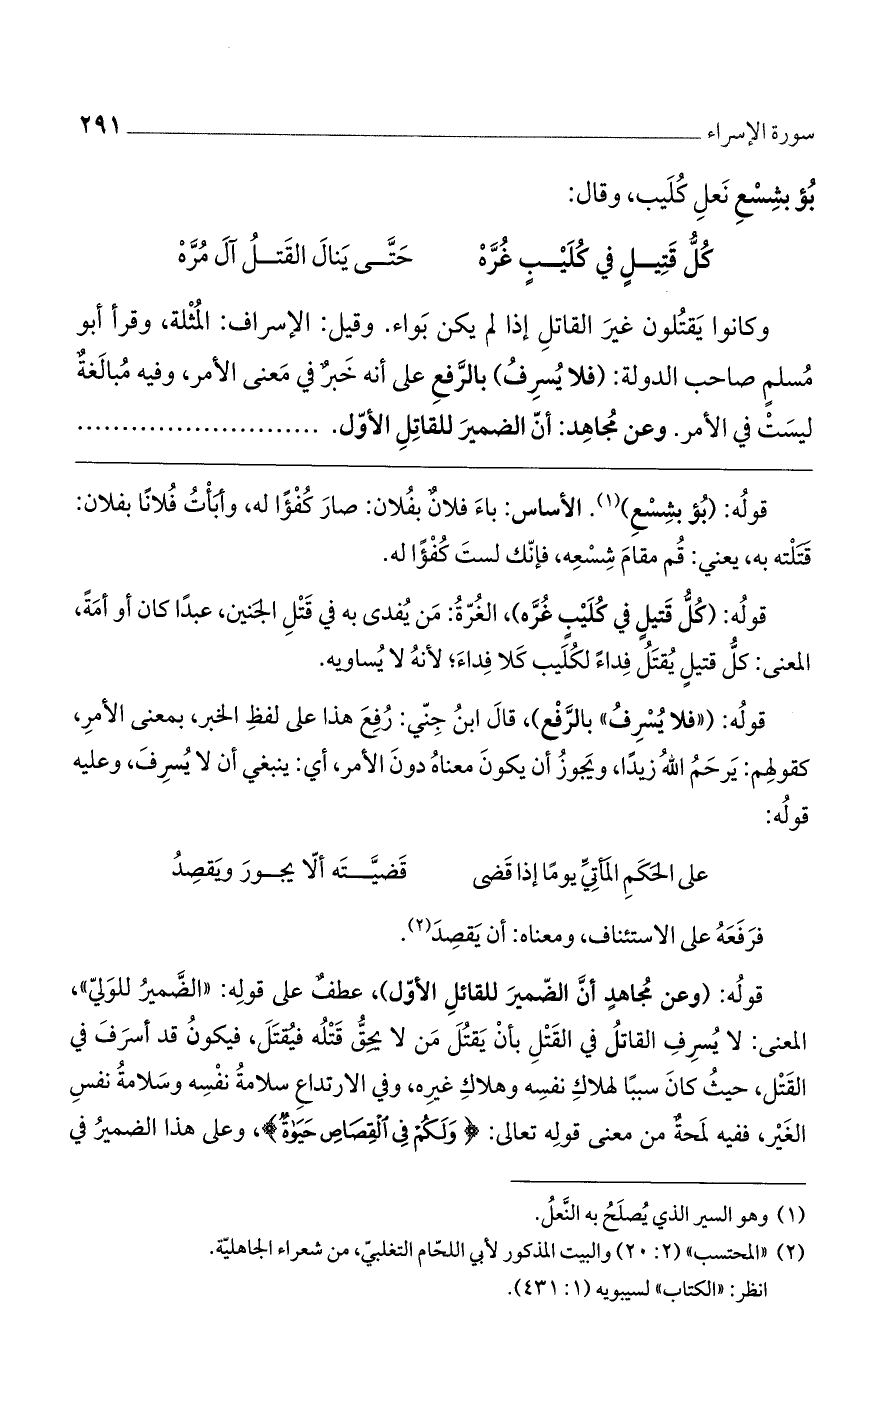 سورة الإسراء ٢٩١
بُؤ بشِسْعِ نَعلِ كُلَيب، وقال:
كُلُّ قَتِيــلٍ في كُلَيْــبٍ غُرَّهْ حَتَّــى يَنالَ القَتــلُ آلَ مُرَّهْ
وكانوا يَقتُلون غيرَ القاتلِ إذا لم يكن بَواء. وقيل: الإسراف: المُثْلة، وقرأ أبو
مُسلمٍ صاحب الدولة: (فلا يُسرِفُ) بالرَّفعِ على أنه خَبرٌ في مَعنى الأمر، وفيه مُبالَغةٌ
ليسَتْ في الأمر. وعن مُجاهِد: أنّ الضميرَ للقاتِلِ الأوّل. ...........................
قولُه: (بُؤ بشِسْعِ)(١). الأساس: باءَ فلانٌ بفُلان: صارَ كُفْؤًا له، وأبَأْتُ فُلانًا بفلان:
قَتَلْته به، يعني: قُم مقامَ شِسْعِه، فإنّك لستَ كُفْؤًا له.
قولُه: (كُلُّ قَتيلٍ في كُلَيْبٍ غُرَّه)، الغُرّةُ: مَن يُفدى به في قَتْلِ الجَنين، عبدًا كان أو أمَةً،
المعنى: كلُّ قتيلٍ يُقتَلُ فِداءً لكُلَيب كَلا فِداءَ؛ لأنهُ لا يُساويه.
قولُه: («فلا يُسْرِفُ» بالرَّفْع)، قالَ ابنُ جِنّي: رُفِعَ هذا على لفظِ الخبر، بمعنى الأمرِ،
كقولهِم: يَرحَمُ اللهُ زيدًا، ويَجوزُ أن يكونَ معناهُ دونَ الأمر، أي: ينبغي أن لا يُسرِفَ، وعليه
قولُه:
على الحَكَمِ المَأتِيِّ يومًا إذا قَضى قَضيَّــتَه ألّا يجــورَ ويَقصِدُ
فرَفَعَهُ على الاستئناف، ومعناه: أن يَقصِدَ(٢).
قولُه: (وعن مُجاهدٍ أنَّ الضّميرَ للقائلِ الأوّل)، عطفٌ على قولِه: «الضَّميرُ للوَليّ»،
المعنى: لا يُسرِفِ القاتلُ في القَتْلِ بأنْ يَقتُلَ مَن لا يحِقُّ قَتْلُه فيُقتَلَ، فيكونُ قد أسرَفَ في
القَتْل، حيثُ كانَ سببًا لهلاكِ نفسِه وهلاكِ غيرِه، وفي الارتداعِ سلامةُ نفْسِه وسَلامةُ نفسِ
الغَيْر، ففيه لَمحةٌ من معنى قولِه تعالى: ﴿وَلَكُمْ فِي ٱلْقِصَاصِ حَيَوٰةٌ﴾، وعلى هذا الضميرُ في
(١) وهو السير الذي يُصلَحُ به النَّعلُ.
(٢) «المحتسب» (٢: ٢٠) والبيت المذكور لأبي اللحّام التغلبيّ، من شعراء الجاهليّة.
انظر: «الكتاب» لسيبويه (١: ٤٣١).